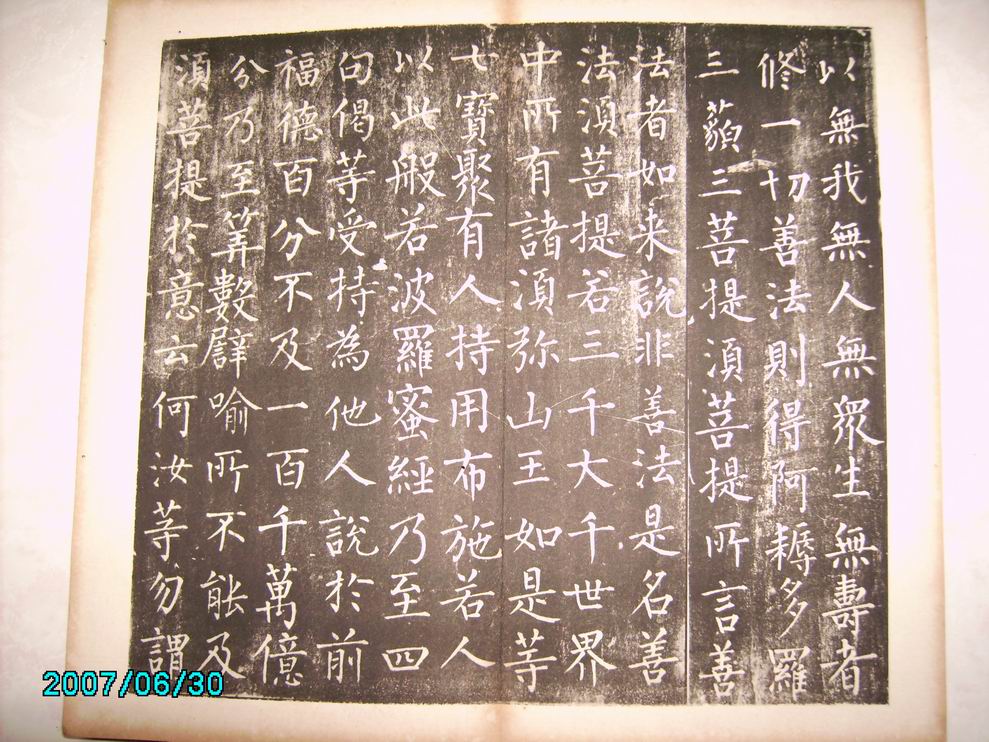 以無我無人無眾生無壽者
修一切善法則得阿耨多羅
三藐三菩提須菩提所言善
法者如来說非善法是名善
法須菩提若三千大千世界
中所有諸須弥山王如是等
七寶聚有人持用布施若人
以此般若波羅蜜經乃至四
句偈等受持為他人說於前
福德百分不及一百千萬億
分乃至筭數譬喻所不能及
須菩提於意云何汝等勿謂
2007/06/30